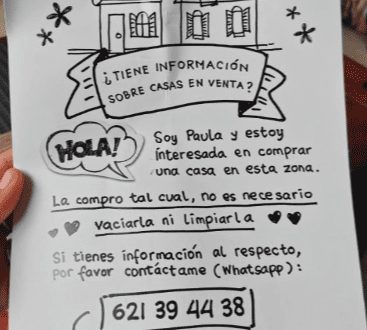 ¿TIENE INFORMACIÓN
SOBRE CASAS EN VENTA?
HOLA!
Soy Paula y estoy
interesada en comprar
una casa en esta zona.
La compro tal cual, no es necesario
vaciarla ni limpiarla
Si tienes información al respecto,
por favor contáctame (Whatsapp):
621 39 44 38